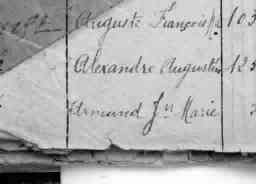 Auguste François M. 103
Alexandre Augustin 125
Edmund Jn Marie